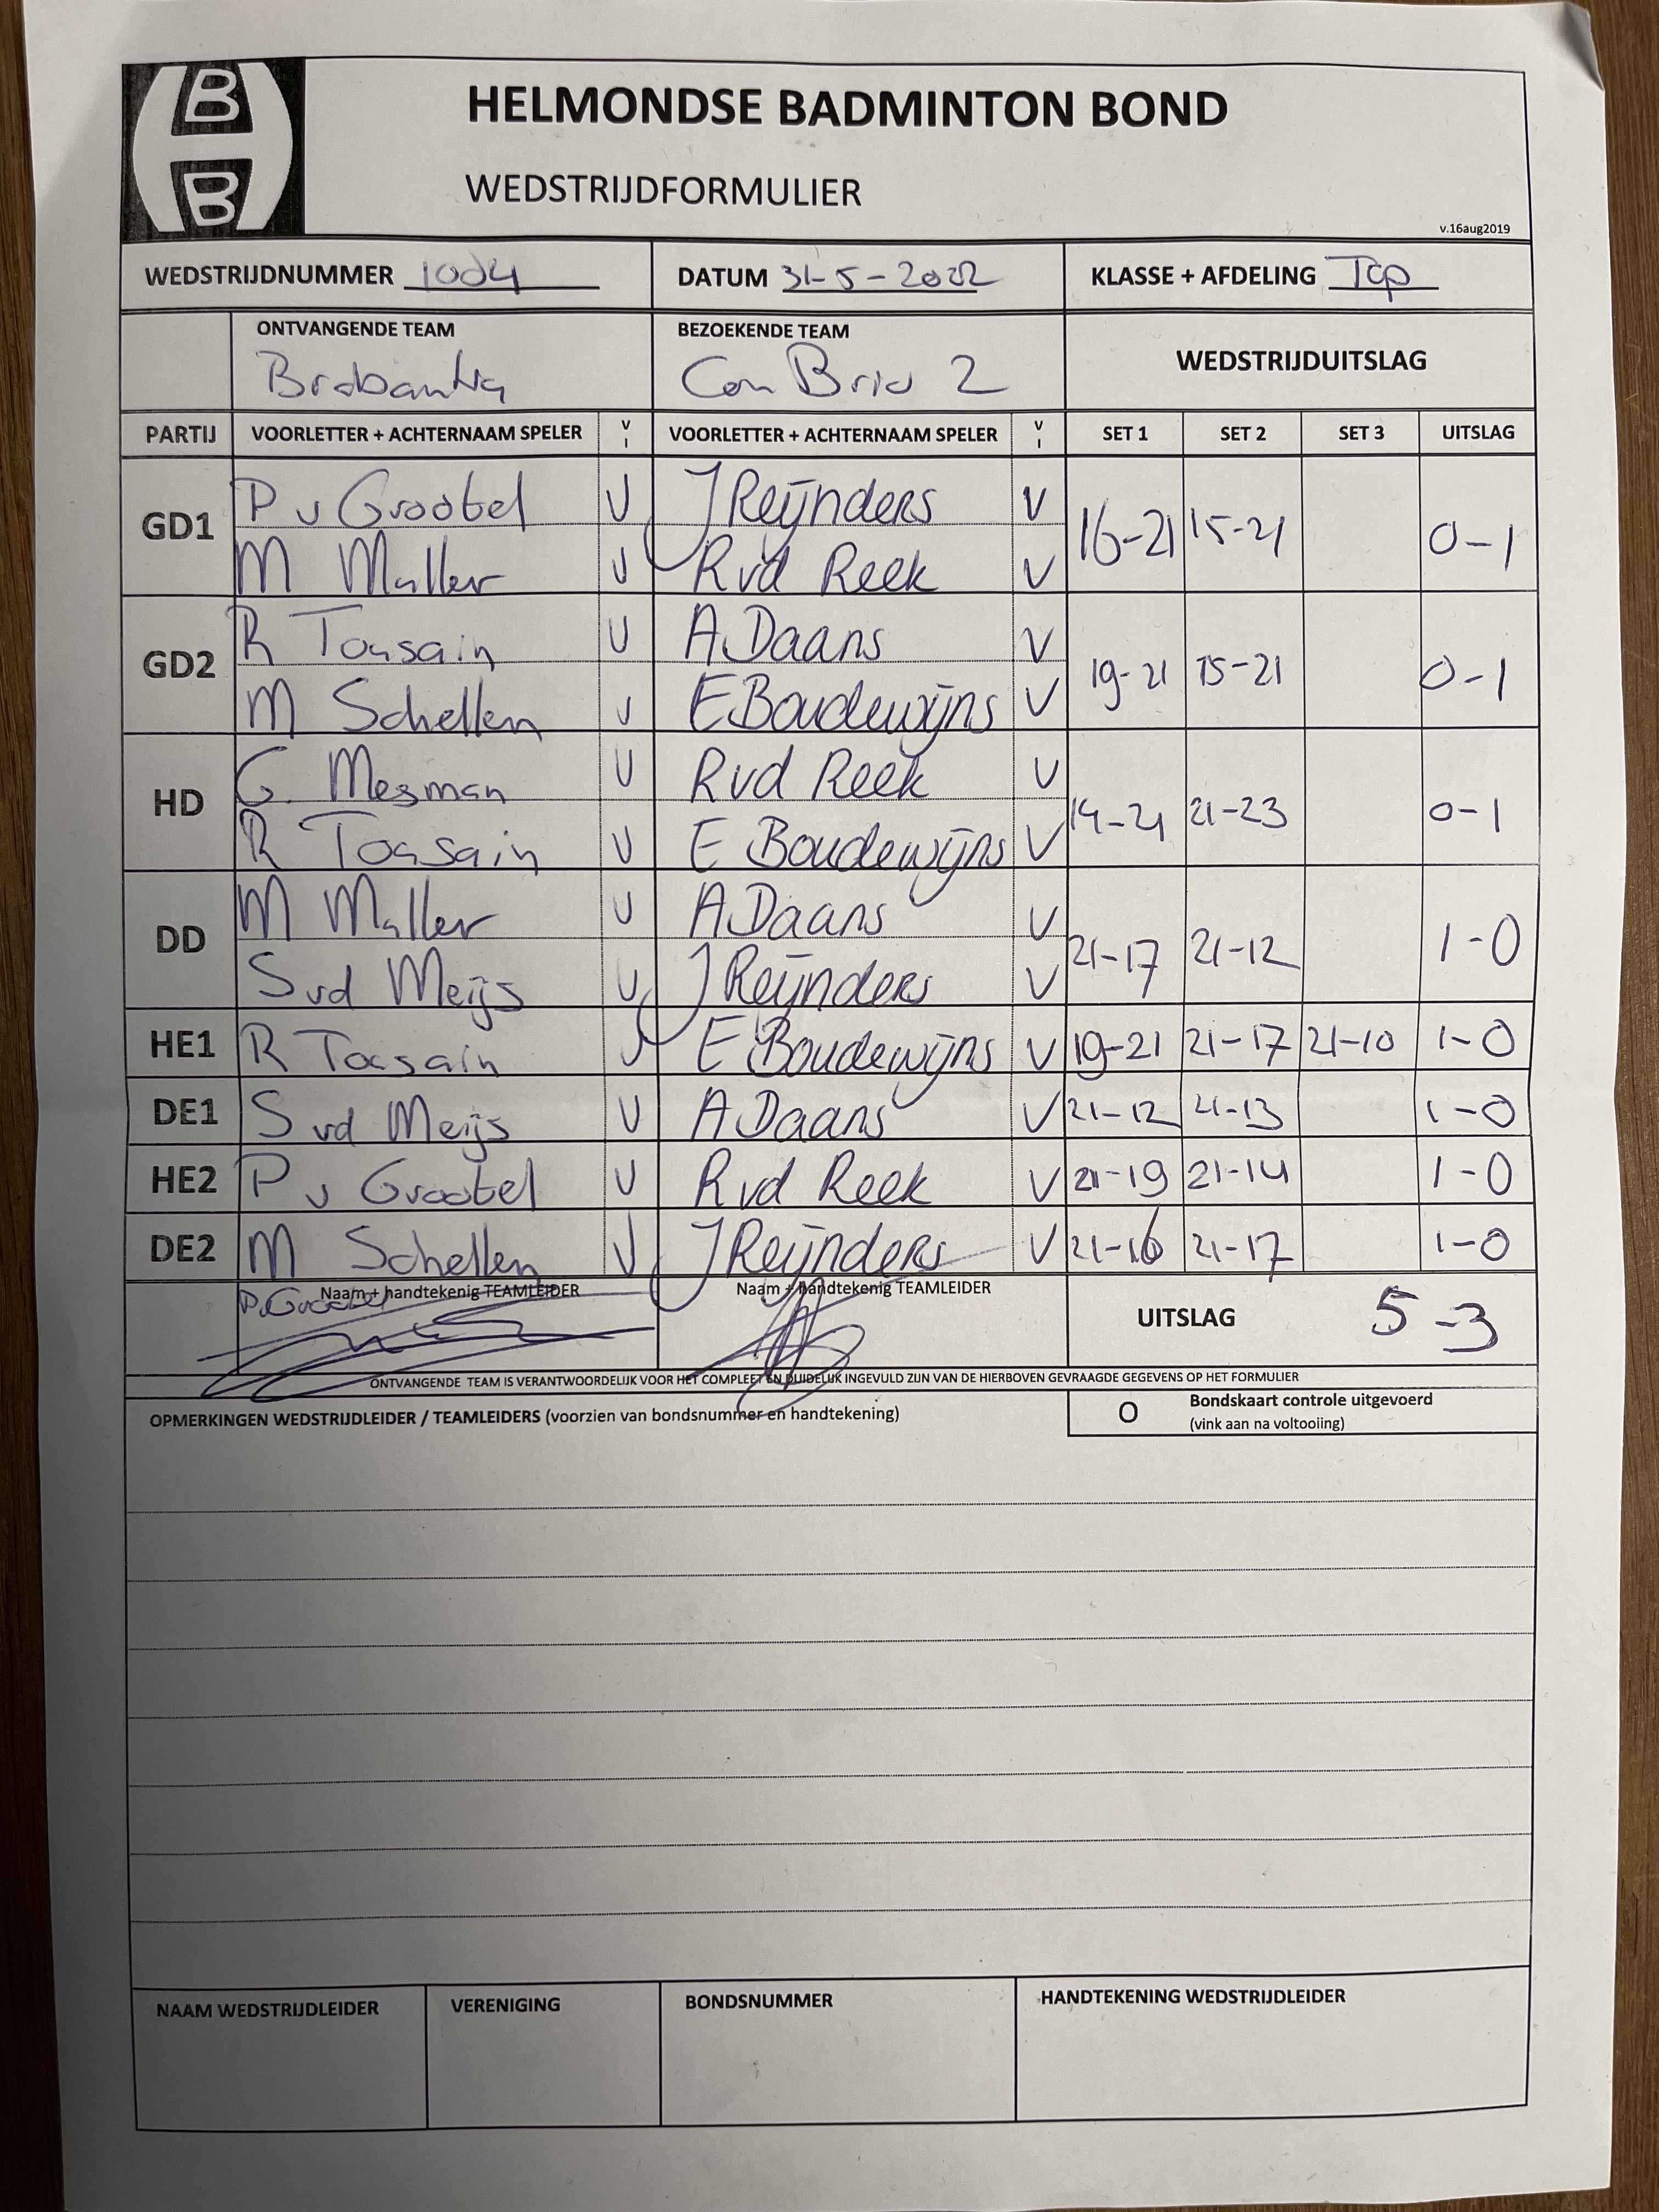 B
B
HELMONDSE BADMINTON BOND
WEDSTRIJDFORMULIER
v.16aug2019
WEDSTRIJDNUMMER 1004 DATUM 31-5-2022 KLASSE + AFDELING Top
ONTVANGENDE TEAM BEZOEKENDE TEAM WEDSTRIJDUITSLAG
Brabantia Con Brio 2
PARTIJ VOORLETTER + ACHTERNAAM SPELER V I VOORLETTER + ACHTERNAAM SPELER V I SET 1 SET 2 SET 3 UITSLAG
GD1 P v Grootel V J Reijnders V 16-21 15-21 0-1
M Muller V R vd Reek V
GD2 R Tousain V A Daans V 19-21 15-21 0-1
M Schellen V E Boudewijns V
HD G. Mesman V R vd Reek V 14-21 21-23 0-1
R Tousain V E Boudewijns V
DD M Muller V A Daans V 21-17 21-12 1-0
S vd Meijs V J Reijnders V
HE1 R Tousain V E Boudewijns V 19-21 21-17 21-10 1-0
DE1 S vd Meijs V A Daans V 21-12 21-13 1-0
HE2 P v Grootel V R vd Reek V 21-19 21-14 1-0
DE2 M Schellen V J Reijnders V 21-16 21-17 1-0
Naam + handtekenig TEAMLEIDER Naam + handtekenig TEAMLEIDER UITSLAG 5-3
P.Grootel
ONTVANGENDE TEAM IS VERANTWOORDELIJK VOOR HET COMPLEET EN DUIDELIJK INGEVULD ZIJN VAN DE HIERBOVEN GEVRAAGDE GEGEVENS OP HET FORMULIER
OPMERKINGEN WEDSTRIJDLEIDER / TEAMLEIDERS (voorzien van bondsnummer en handtekening) O Bondskaart controle uitgevoerd
(vink aan na voltooiing)
NAAM WEDSTRIJDLEIDER VERENIGING BONDSNUMMER HANDTEKENING WEDSTRIJDLEIDER